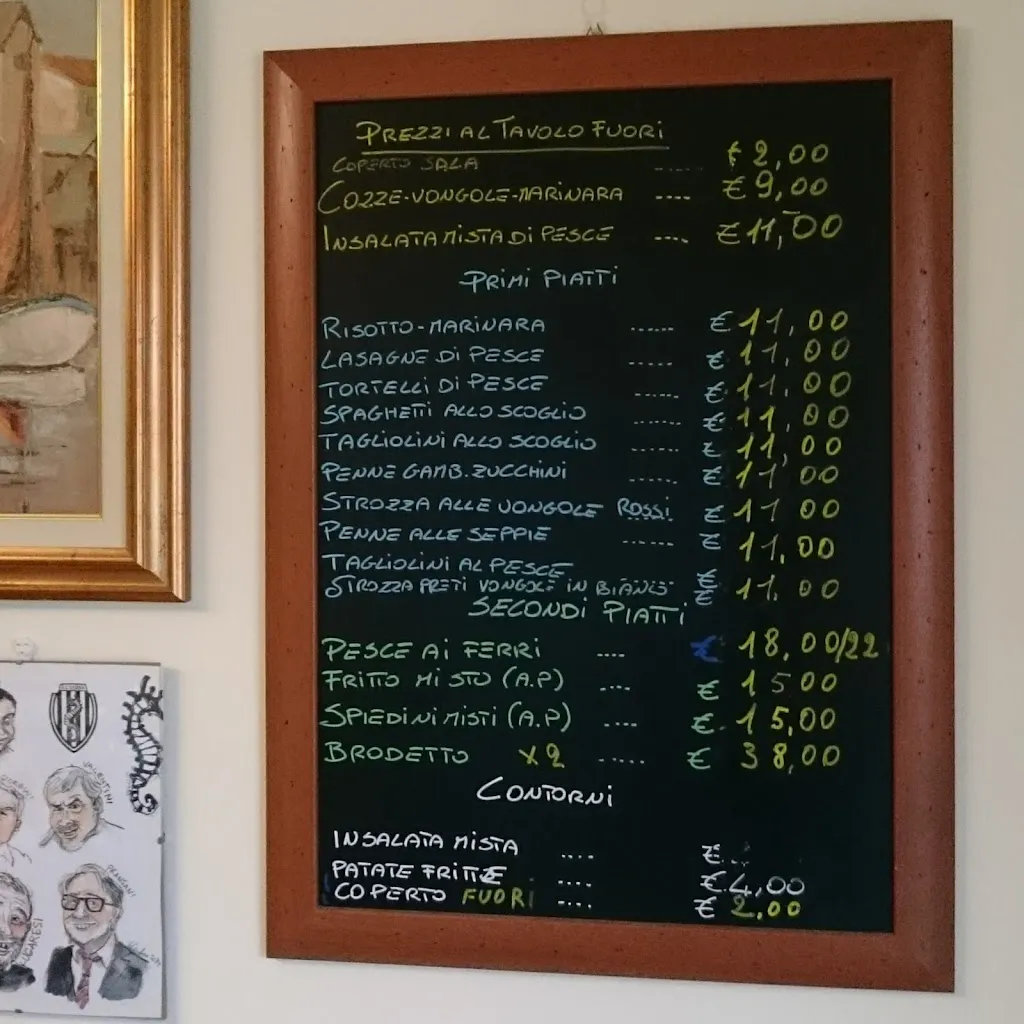 PREZZI AL TAVOLO FUORI
COPERTO SALA ..... € 2,00
COZZE-VONGOLE-MARINARA .... € 9,00
INSALATA MISTA DI PESCE .... € 11,00
PRIMI PIATTI
RISOTTO-MARINARA ...... € 11,00
LASAGNE DI PESCE ..... € 11,00
TORTELLI DI PESCE ..... € 11,00
SPAGHETTI ALLO SCOGLIO ...... € 11,00
TAGLIOLINI ALLO SCOGLIO ...... € 11,00
PENNE GAMB. ZUCCHINI ...... € 11,00
STROZZA ALLE VONGOLE ROSSI € 11,00
PENNE ALLE SEPPIE ....... € 11,00
TAGLIOLINI AL PESCE €
STROZZA PRETI VONGOLE IN BIANCO € 11,00
SECONDI PIATTI
PESCE AI FERRI .... € 18,00/22
FRITTO MISTO (A.P) .... € 1500
SPIEDINI MISTI (A.P) .... € 15,00
BRODETTO X2 ..... € 38,00
CONTORNI
INSALATA MISTA .... €
PATATE FRITTE .... € 4,00
COPERTO FUORI .... € 2,00
VALENTINI
FRANSONI